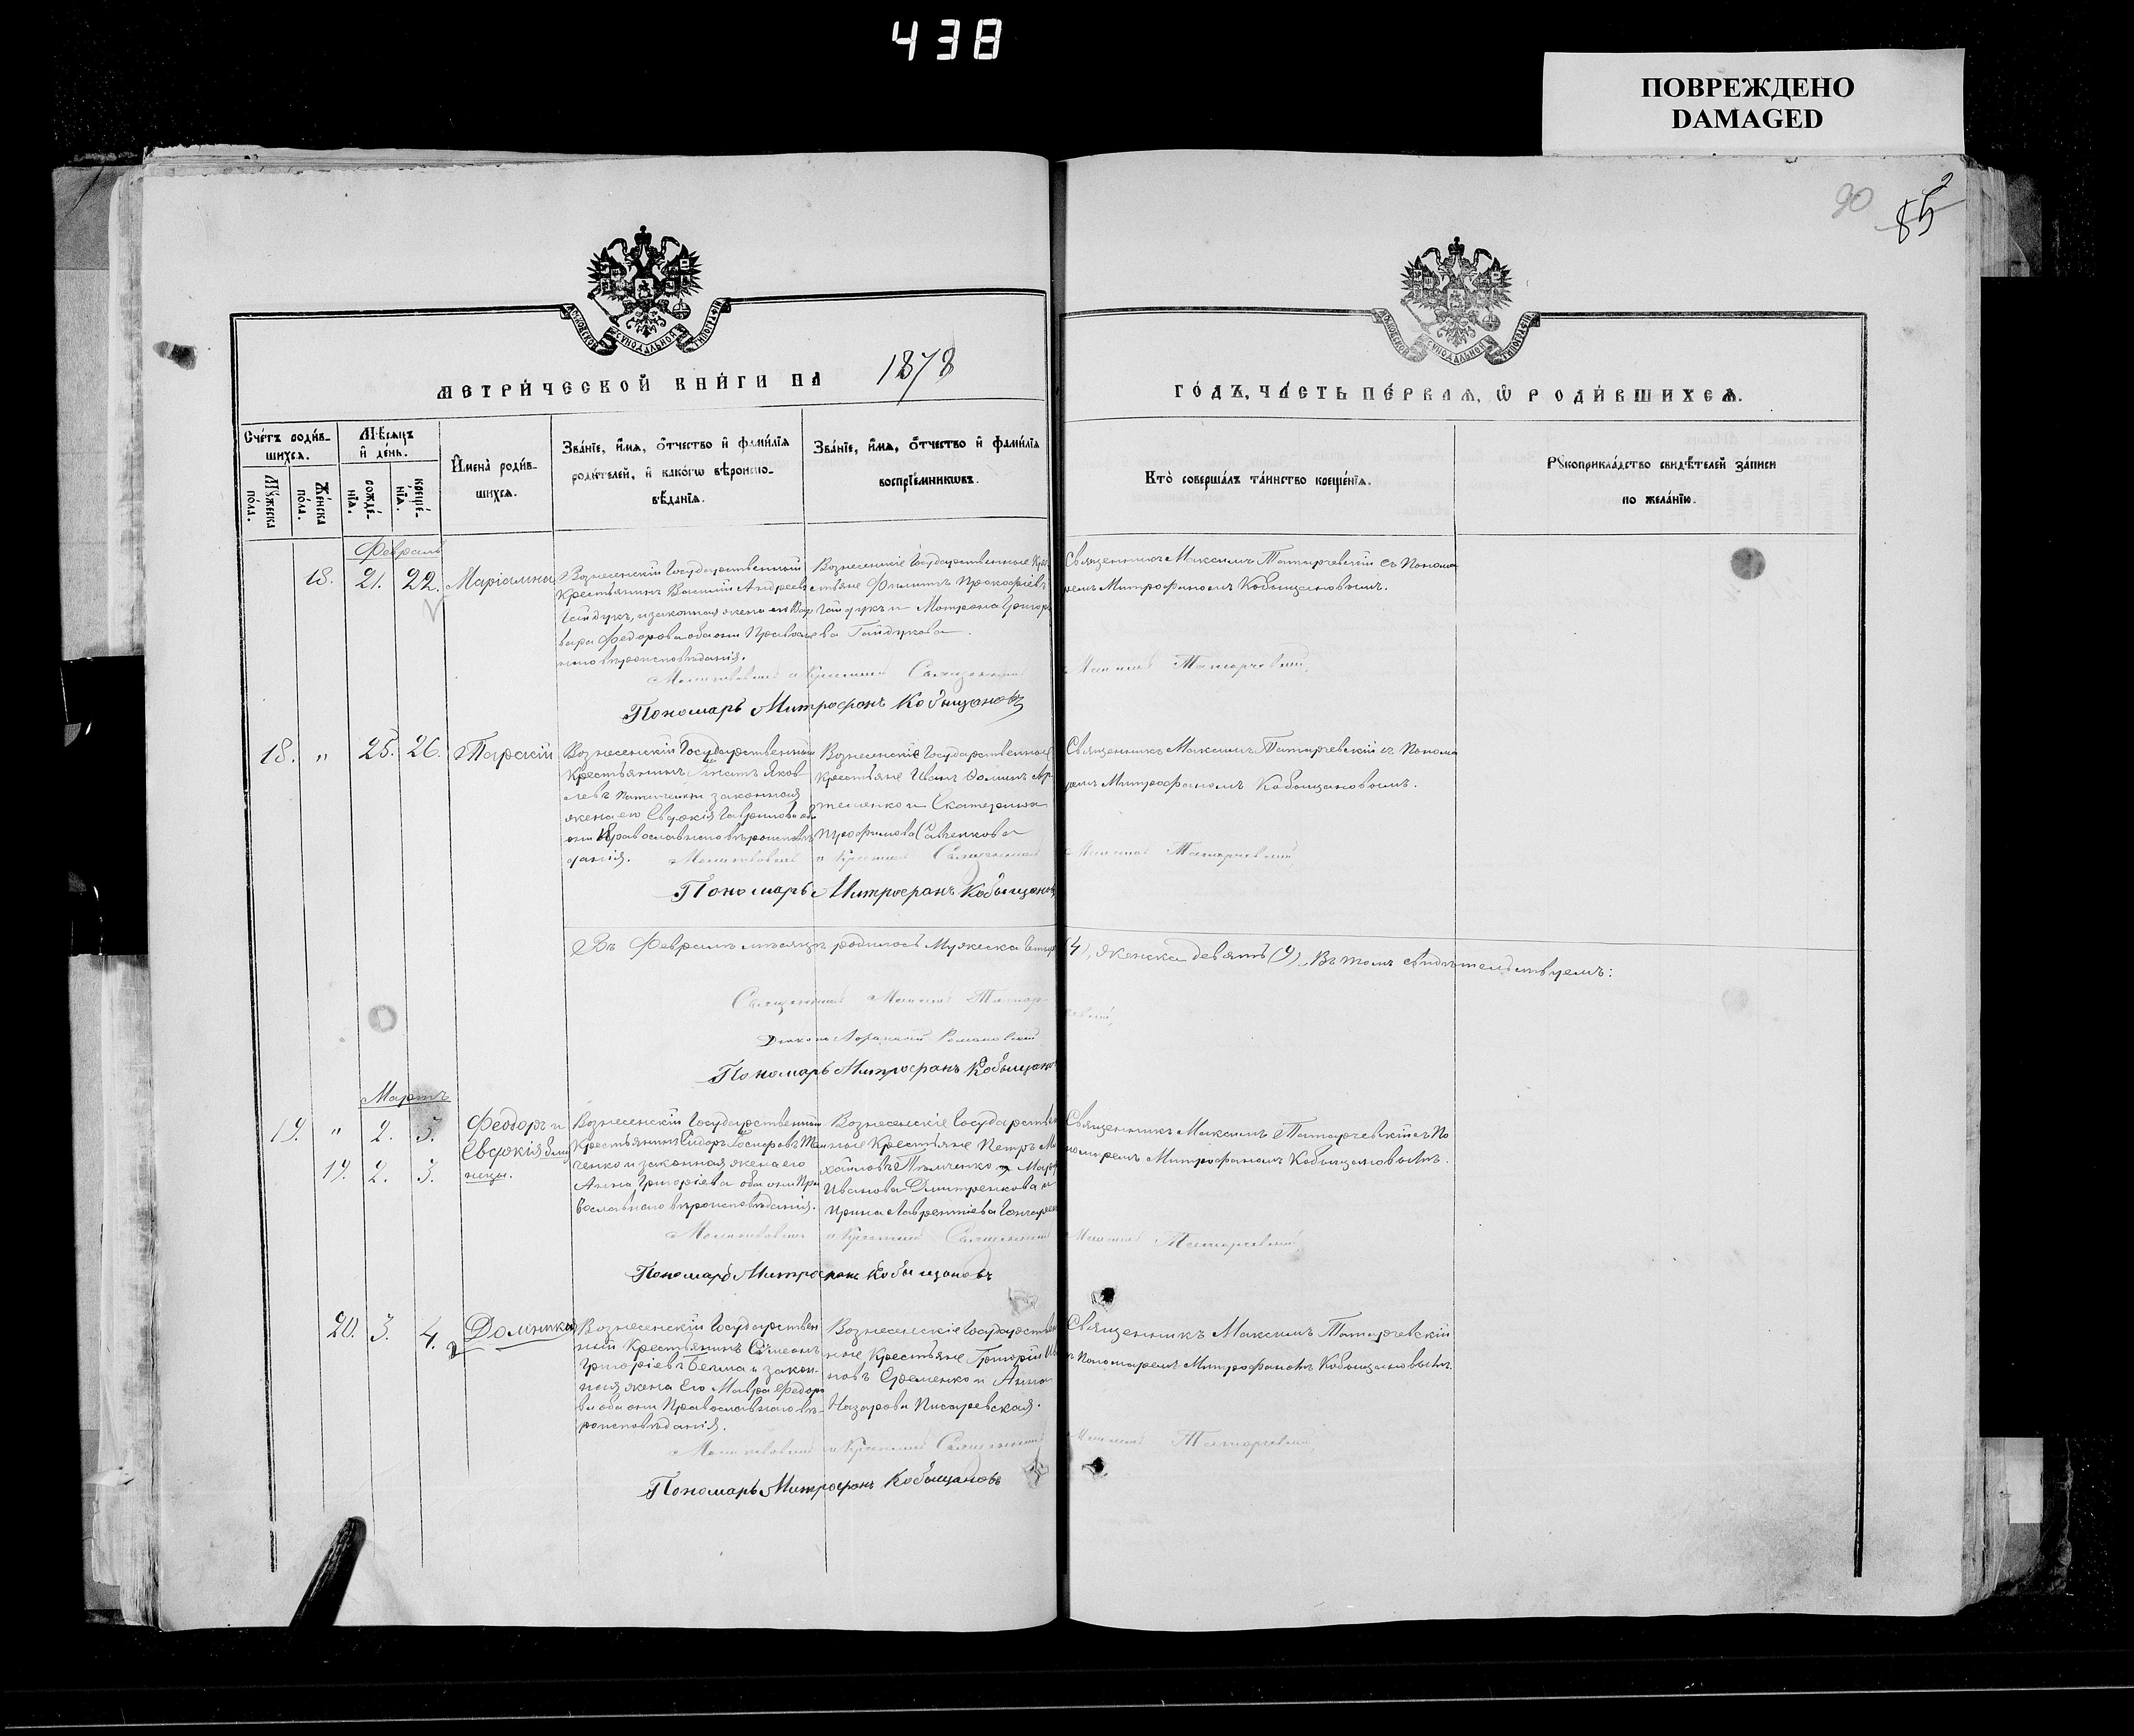 438
ПОВРЕЖДЕНО
DAMAGED
90
85
МЕТРИ́ЧЕСКОЙ КНИ́ГИ НА 1878
ГО́ДЪ, ЧА́СТЬ ПЕ́РВАѦ, Ѡ РОДИ́ВШИХСѦ.
Сче́тъ роди́в-
шихсѧ.
Мꙋ́жеска по́ла.
Же́нска по́ла.
Мѣ́сѧцъ
и҆ де́нь.
рожде́-
нїѧ.
креще́-
нїѧ.
И҆мена̀ роди́в-
шихсѧ.
Зва́нїе, и҆́мѧ, ѻ҆́тчество и҆ фами́лїѧ
роди́телей, и҆ како́гѡ вѣроиспо-
вѣ́данїѧ.
Зва́нїе, и҆́мѧ, ѻ҆́тчество и҆ фами́лїѧ
воспрїе́мникѡвъ.
Кто̀ соверша́лъ та́инство креще́нїѧ.
Рꙋкоприкла́дство свидѣ́телей за́писи
по жела́нїю.
Февраль
18. 21. 22. Маріамна
Вознесенскій Государственный
Крестьянинъ Василій Андреевъ
Гайдукъ, и законная жена его Вар
вара Федорова оба они Православ
наго вѣроисповѣданія.
Вознесенскіе Государственные Кре
стьяне Филиппъ Прокофіевъ
Гайдукъ и Матрона Григорь
ева Гайдукова.
Священникъ Максимъ Татарчевскій съ Понома
ремъ Митрофаномъ Кобыщановымъ.
Молитвовалъ и крестилъ Священникъ Максимъ Татарчевскій,
Пономарь Митрофанъ Кобыщановъ
18. " 25. 26. Тарасій
Вознесенскій Государственный
Крестьянинъ Игнатъ Яков
левъ законная
жена его Евдокія Гаврилова оба
они Православнаго вѣроисповѣ
данія.
Вознесенскіе Государственные
Крестьяне Иванъ Фоминъ Ар
теменко и Екатерина
Савенкова
Священникъ Максимъ Татарчевскій съ Понома
ремъ Митрофаномъ Кобыщановымъ.
Молитвовалъ и крестилъ Священникъ Максимъ Татарчевскій,
Пономарь Митрофанъ Кобыщановъ
Въ Февралѣ мѣсяцѣ родилось Мужеска четыре (4), женска девять (9). Въ томъ свидѣтельствуемъ:
Священникъ Максимъ Татарчевскій,
Діаконъ Афанасій Романовскій
Пономарь Митрофанъ Кобыщановъ
Мартъ
19. " 2. 3. Феодоръ и
19. 2. 3. Евдокія близ
ницы.
Вознесенскій Государственный
Крестьянинъ Сидоръ Іосифовъ Тем
ченко и законная жена его
Анна Григоріева оба они Пра
вославнаго вѣроисповѣданія.
Вознесенскіе Государствен
ные Крестьяне Петръ Ми
хайловъ Темченко и Марѳа
Иванова Дмитренкова и
Ирина Лаврентіева Гончарен
Священникъ Максимъ Татарчевскій съ По
номаремъ Митрофаномъ Кобыщановымъ.
Молитвовалъ и крестилъ Священникъ Максимъ Татарчевскій,
Пономарь Митрофанъ Кобыщановъ
20. 3. 4. Домника
Вознесенскій Государствен
ный Крестьянинъ Симеонъ
Григоріевъ Белма и закон
ная жена Его Мавра Федоро
ва оба они Православнаго вѣ-
роисповѣданія.
Вознесенскіе Государствен
ные Крестьяне Григорій Ива
новъ Еременко и Анна
Назарова Писаревская.
Священникъ Максимъ Татарчевскій
съ Пономаремъ Митрофаномъ Кобыщановымъ.
Молитвовалъ и крестилъ Священникъ Максимъ Татарчевскій,
Пономарь Митрофанъ Кобыщановъ